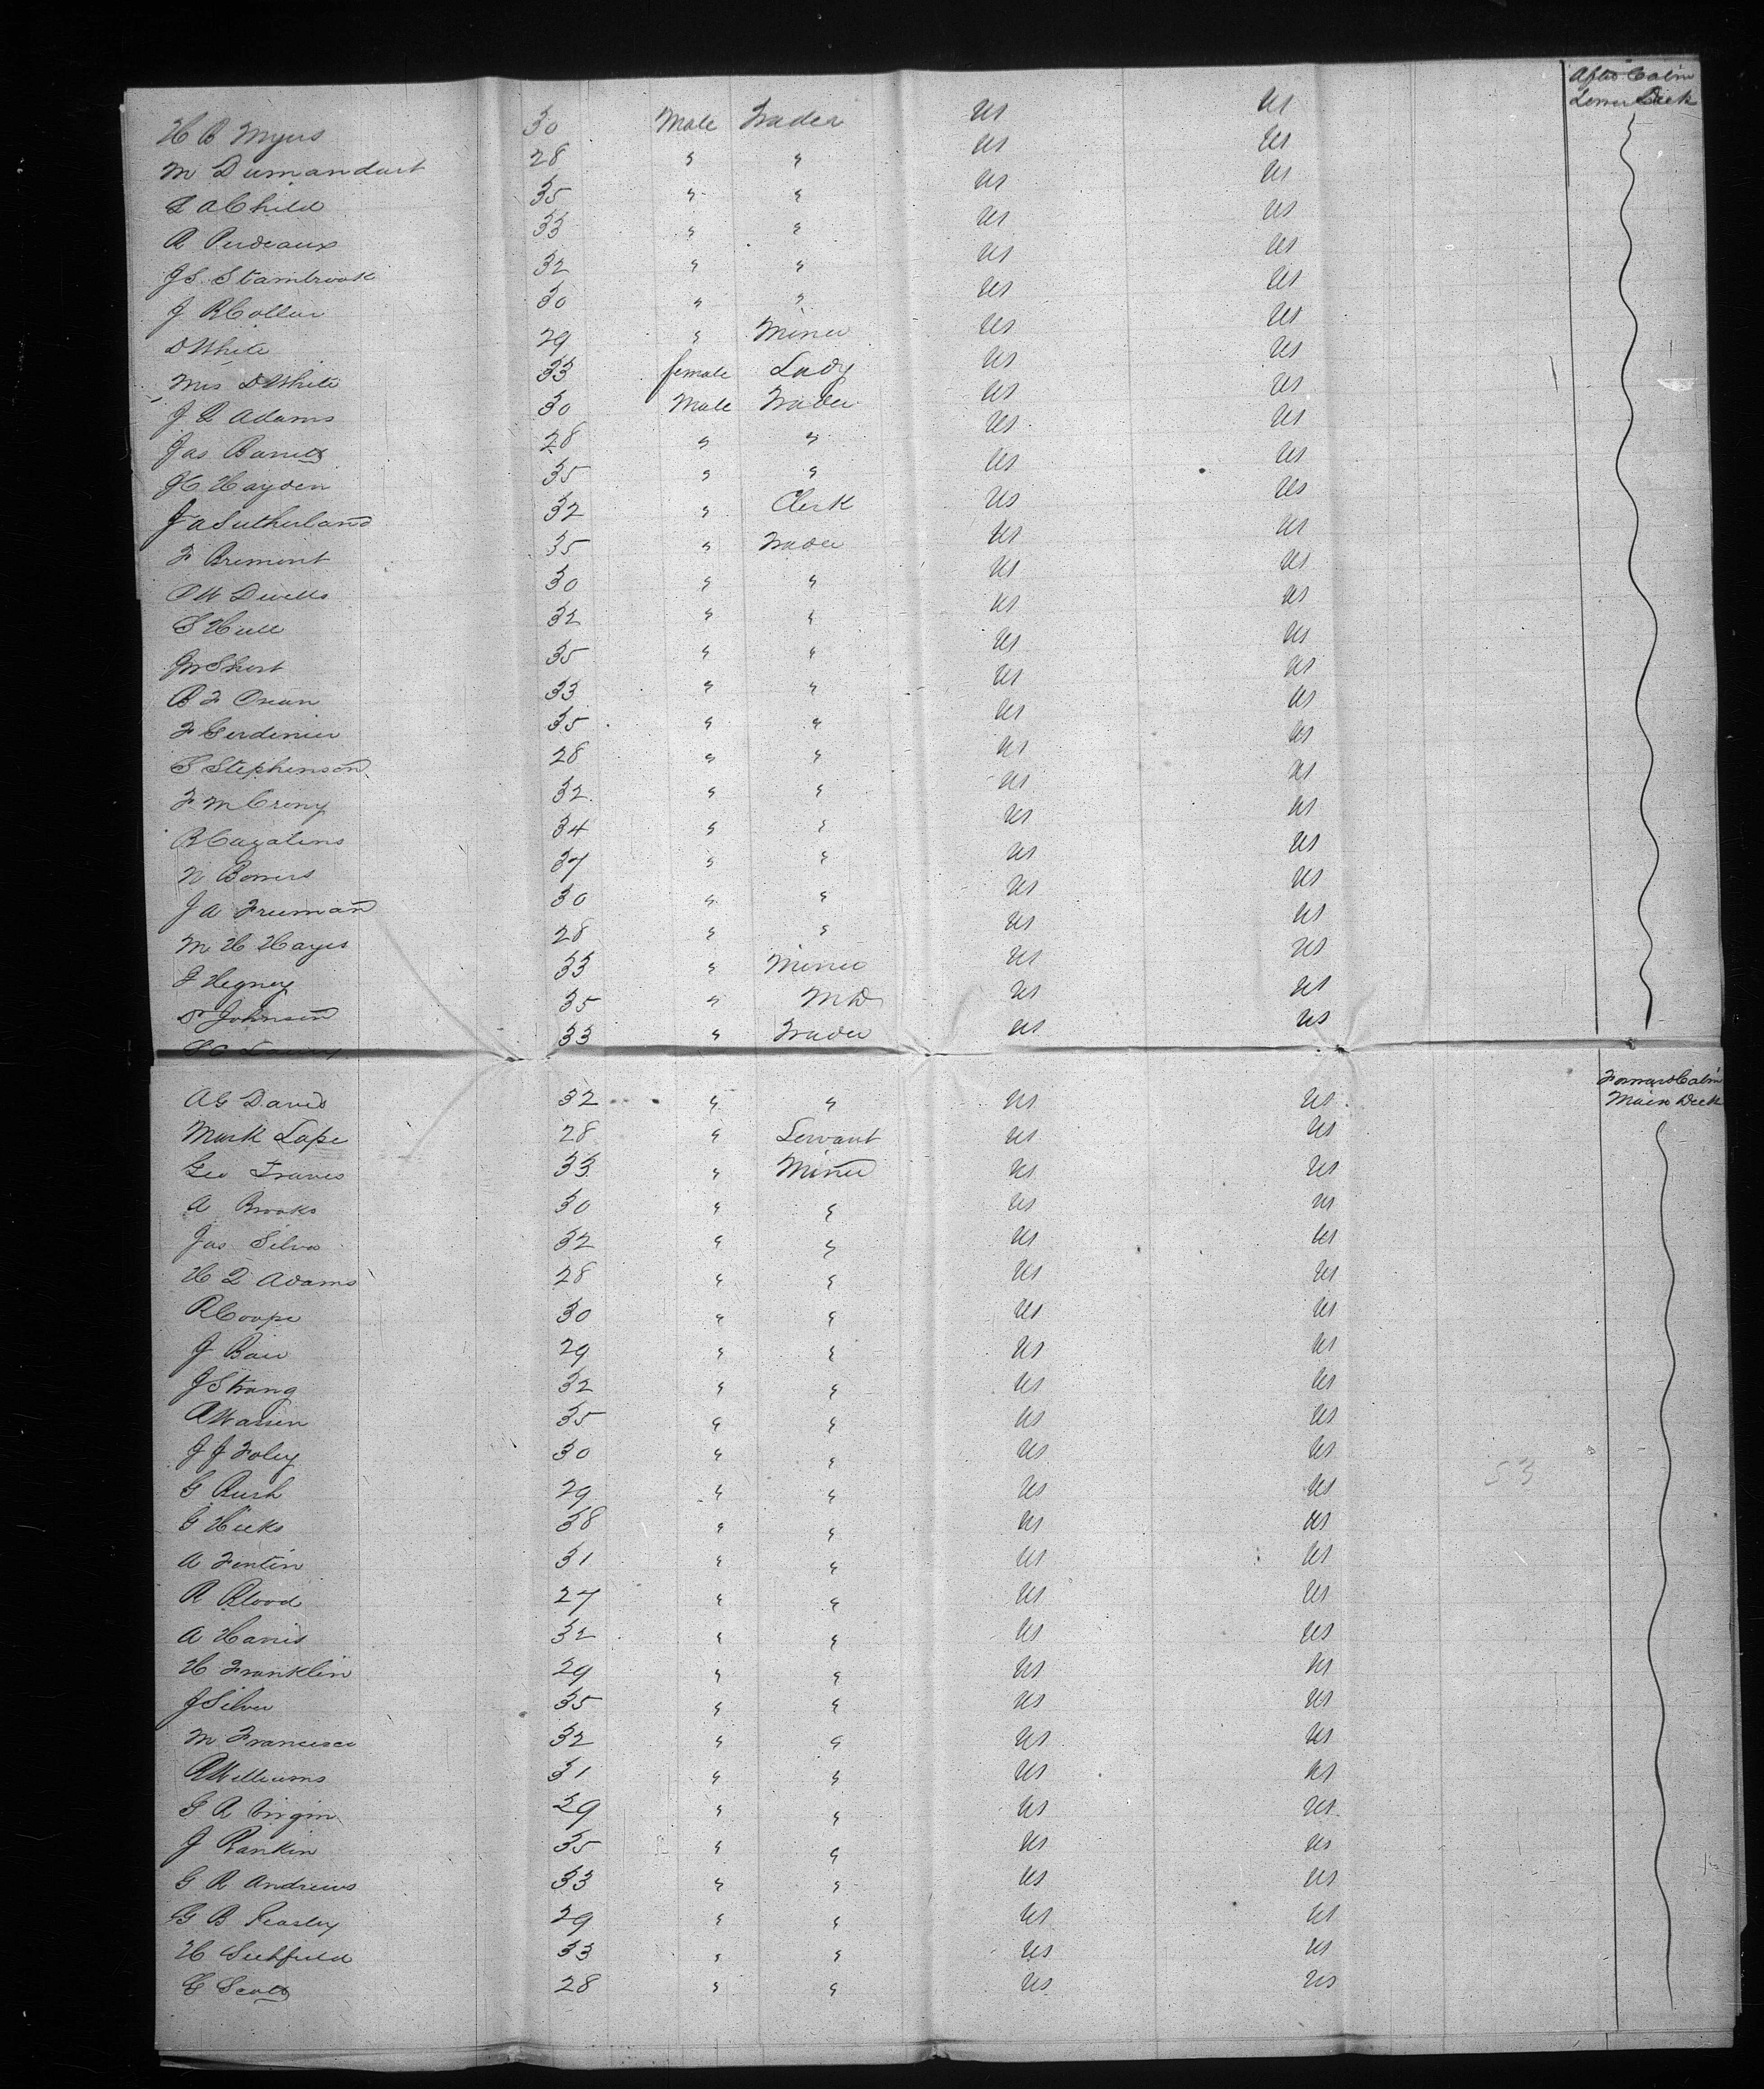 After Cabin
Lower Deck
H B Myers 30 Male Trader US US
M Dumandart 28 " " US US
L A Child 35 " " US US
A Perdeaux 33 " " US US
J S. Stambrook 32 " " US US
J R Collur 30 " " US US
D White 29 " Miner US US
Mrs D White 33 female Lady US US
J R Adams 30 Male Trader US US
Jas Barrett 28 " " US US
J C Hayden 35 " " US US
J A Sutherland 32 " Clerk US US
F Bremont 35 " Trader US US
P W Divells 30 " " US US
S Hull 32 " " US US
J W Short 35 " " US US
B F Oman 33 " " US US
F Gerdinier 35 " " US US
S Stephenson 28 " " US US
F M Crony 32 " " US US
B Cazatins 34 " " US US
N Bowers 37 " " US US
J A Freeman 30 " " US US
M H Hayes 28 " " US US
J Hegney 33 " Miner US US
Dr Johnson 35 " MD US US
33 " Trader US US
Forward Cabin
Main Deck
A G David 32 " " US US
Mark Lape 28 " Servant US US
Geo Traves 33 " Miner US US
A Brooks 30 " " US US
Jas Silva 32 " " US US
H Q Adams 28 " " US US
R Coope 30 " " US US
J Bair 29 " " US US
J Strang 32 " " US US
A Warren 35 " " US US
J J Foley 30 " " US US
G Rush 29 " " US US
53
G Hicks 38 " " US US
A Fentin 31 " " US US
R Blood 27 " " US US
A Harris 32 " " US US
H Franklin 29 " " US US
J Silver 35 " " US US
M Francisco 32 " " US US
R Williams 31 " " US US
G R Virgin 29 " " US US
J Rankin 35 " " US US
G R Andrews 33 " " US US
G B Peasley 29 " " US US
H Litchfield 33 " " US US
C Scott 28 " " US US